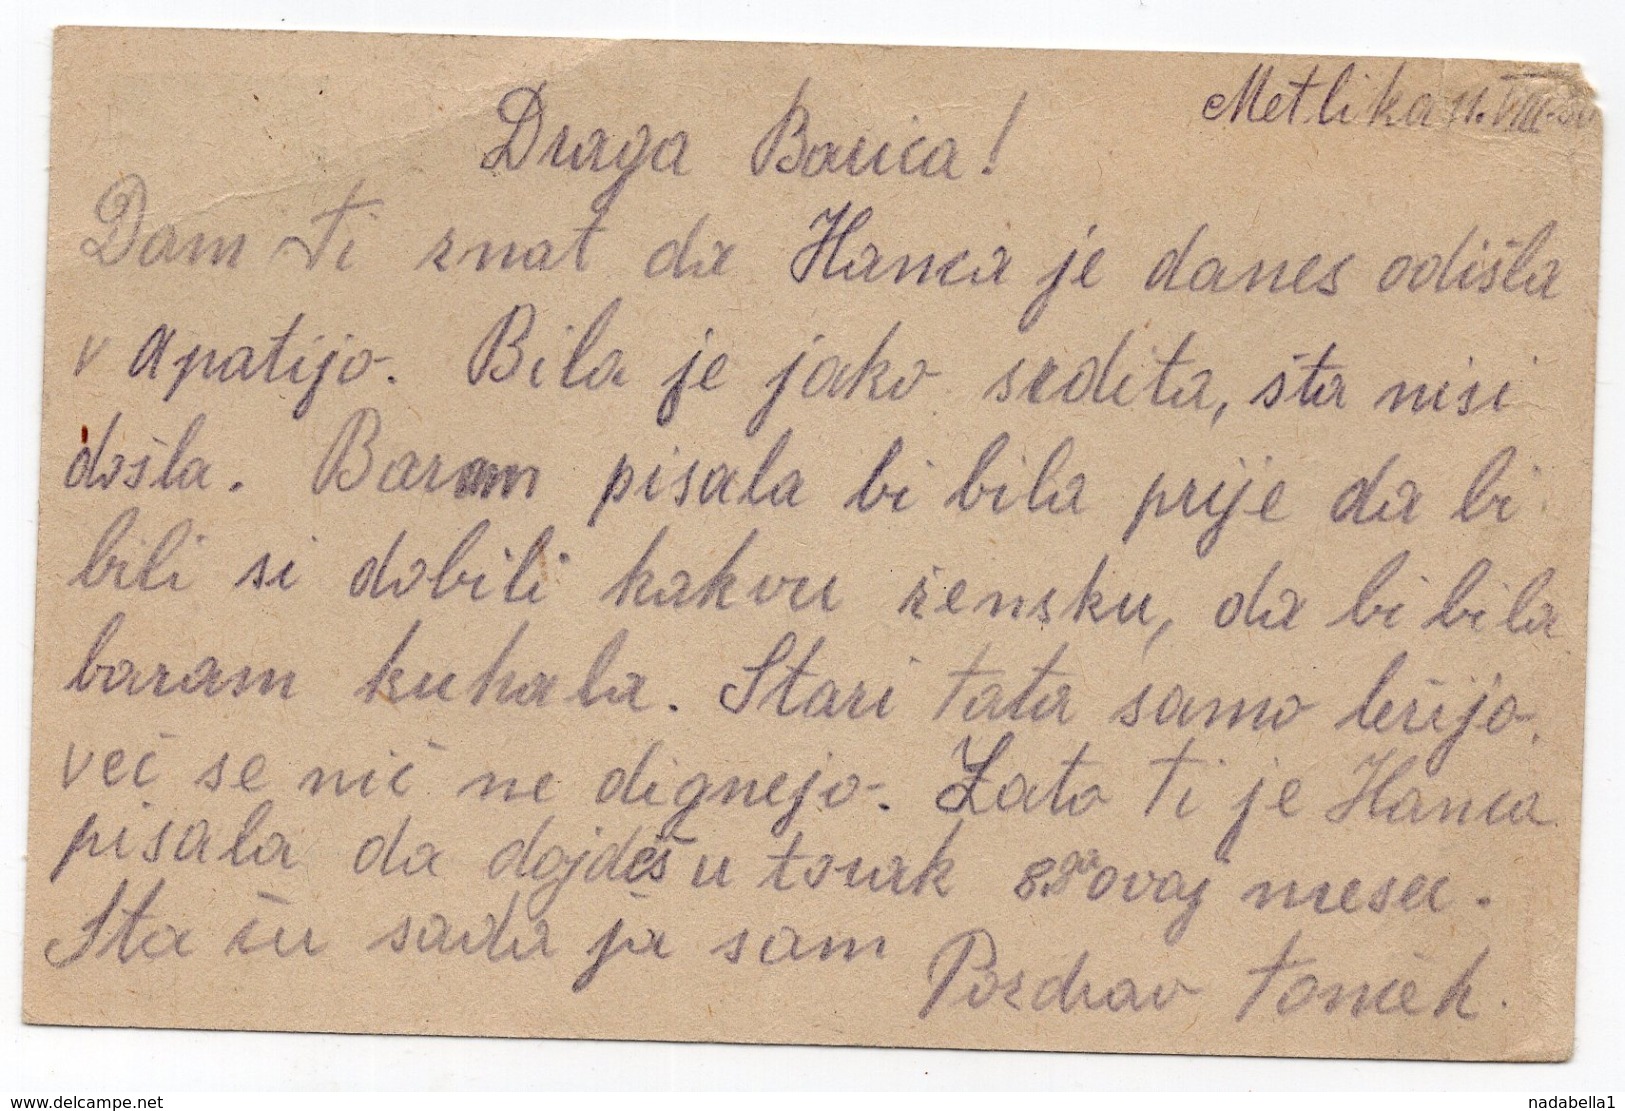 Metlika 11. VIII.
Draga Barica!
Dam Ti znat da Hanca je danes odišla
v Apatijo. Bila je jako srdita, šta nisi
došla. Baram pisala bi bila prije da bi
bili si dobili kakvu žensku, da bi bila
baram kuhala. Stari tata samo ležijo.
več se nič ne dignejo. Zato Ti je Hanca
pisala da dojdeš u tovak ovaj mesec.
Sta ču sada ja sam
Pozdrav Tonček.
www.delcampe.net
nadabella1